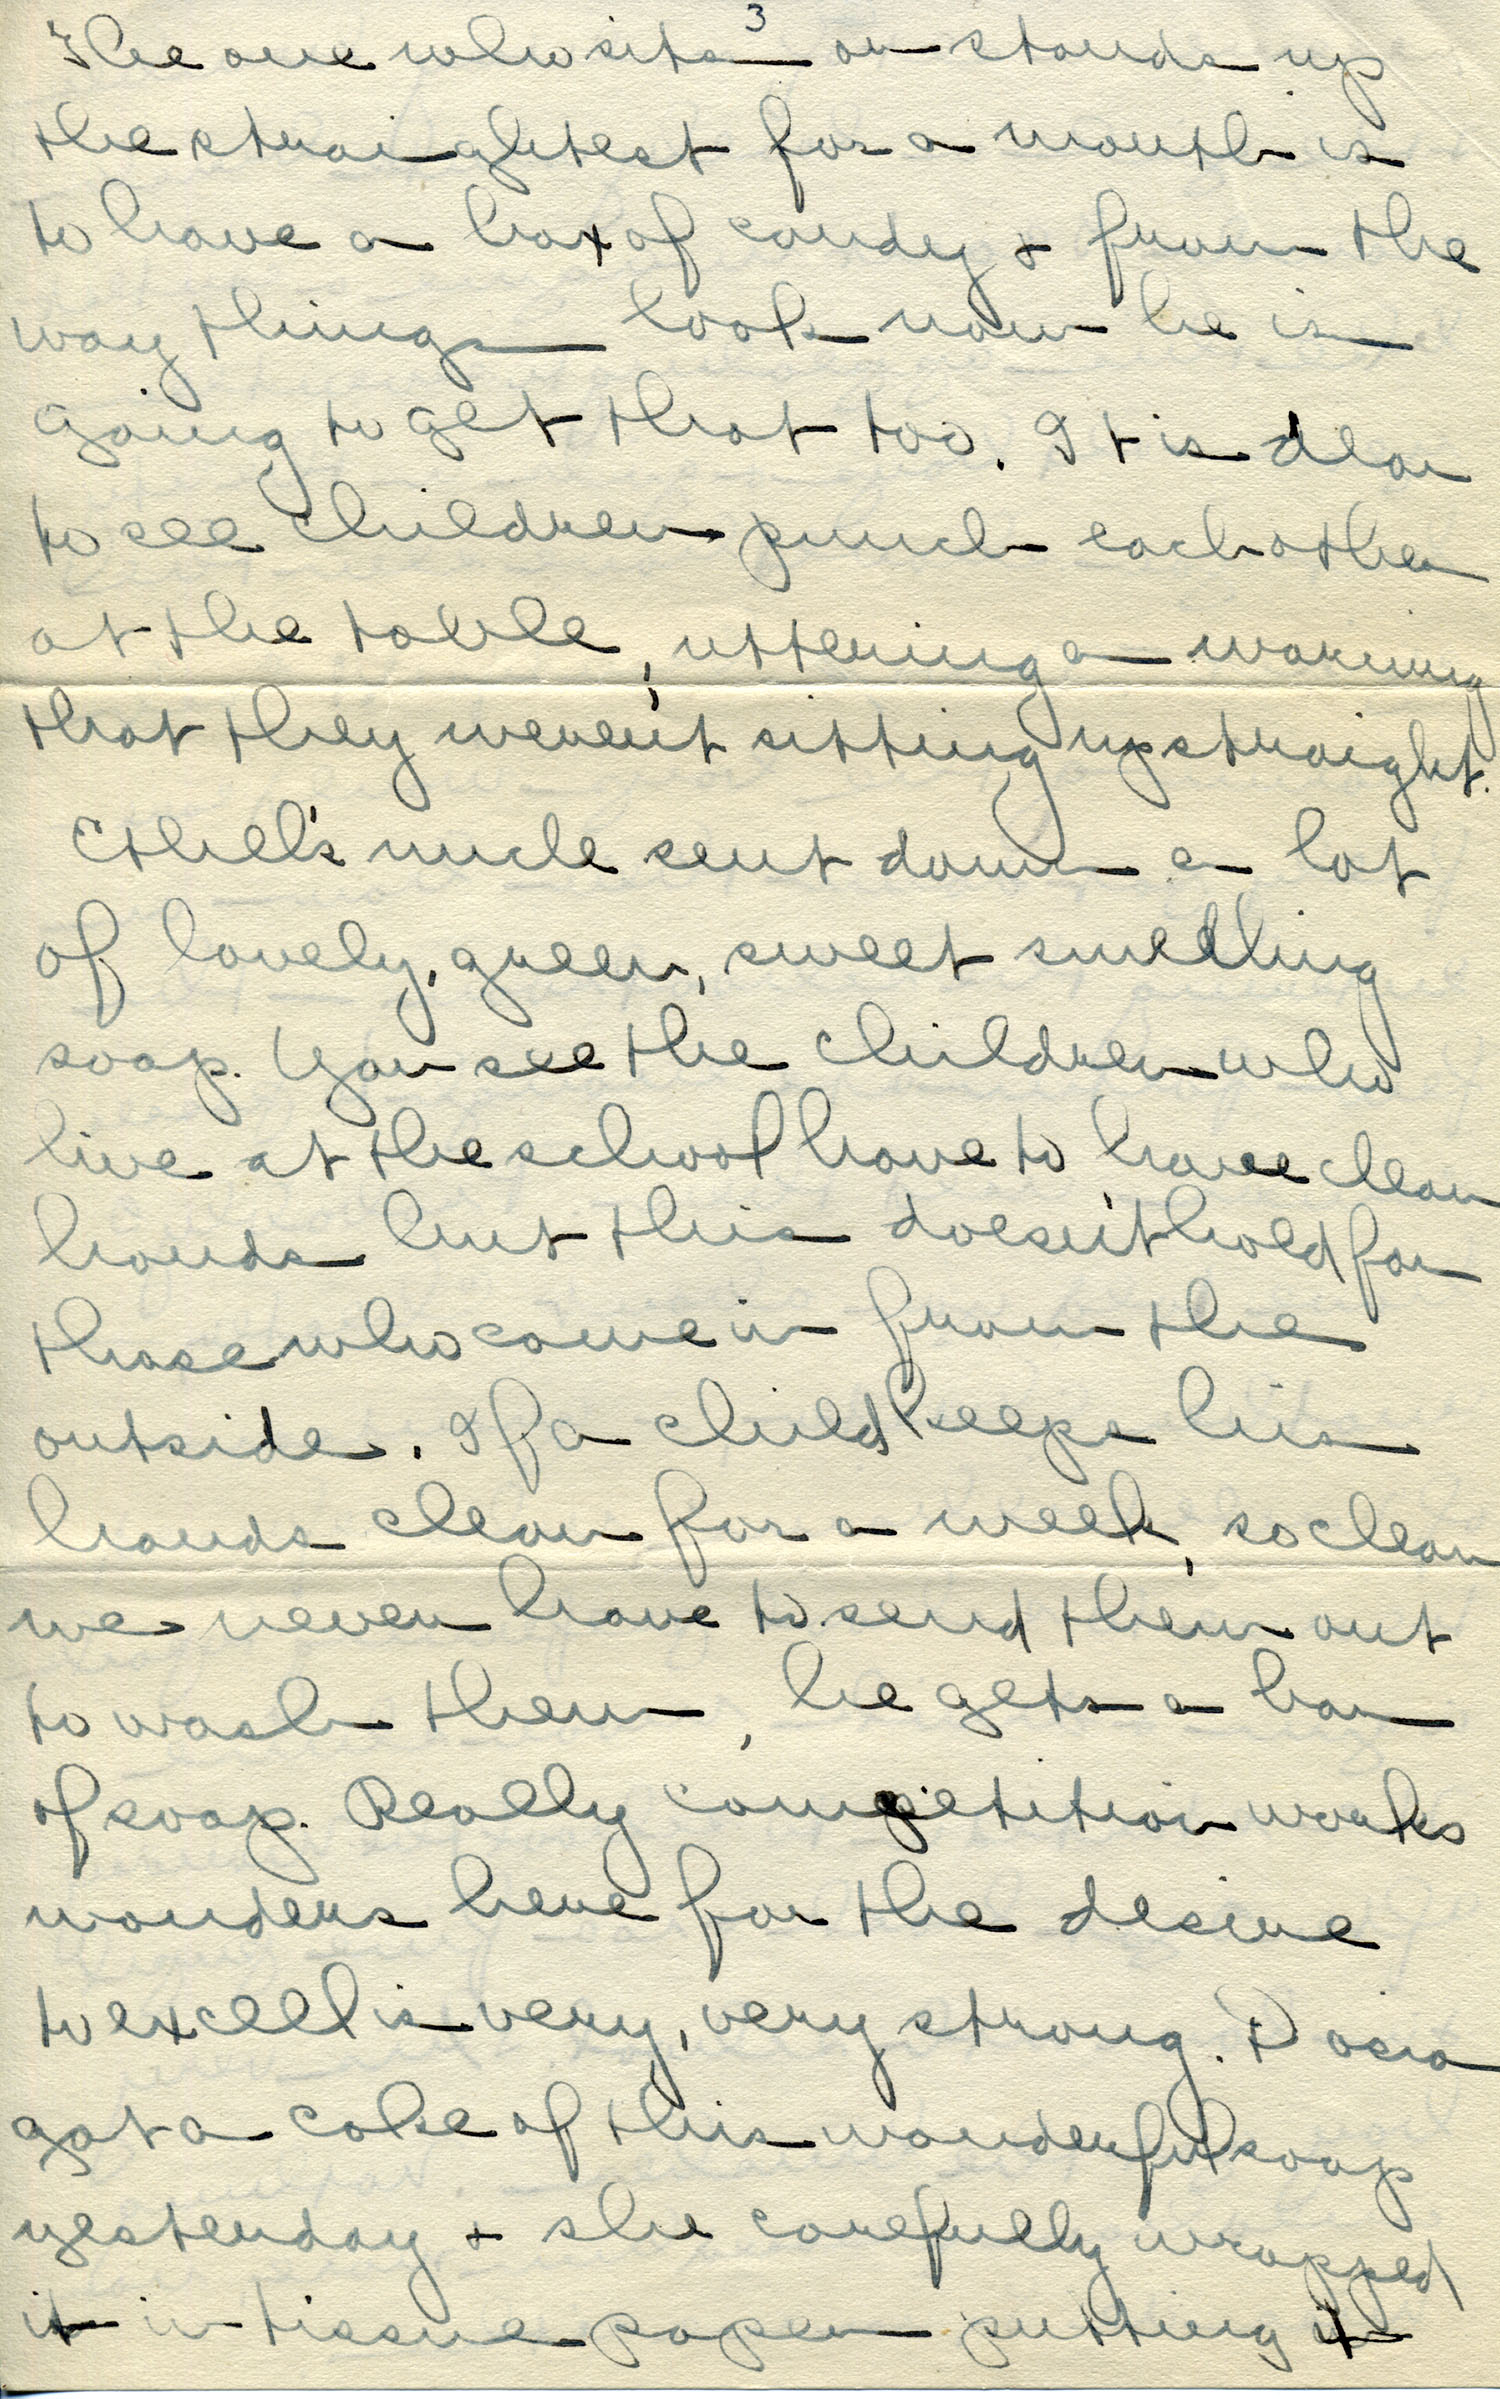 3
The one who sits or stands up
the straightest for a month is
to have a box of candy & from the
way things look now he is
going to get that too. It is dear
to see children punch each other
at the table, uttering a warning
that they weren't sitting up straight.
Ethel's uncle sent down a lot
of lovely, green, sweet smelling
soap. You see the children who
live at the school have to have clean
hands but this doesn't hold for
those who come in from the
outside. If a child keeps his
hands clean for a week, so clean
we never have to send them out
to wash them, he gets a bar
of soap. Really competition works
wonders here for the desire
to excell is very, very strong. Dosia
got a cake of this wonderful soap
yesterday & she carefully wrapped
it in tissue paper putting it